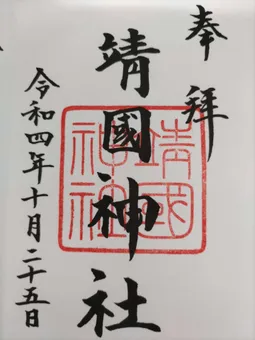 奉拝
靖國神社
靖國神社
令和四年十月二十五日